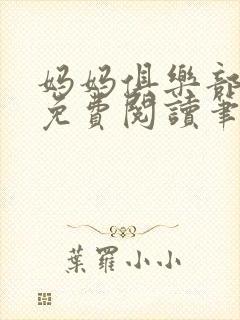 妈妈俱樂部
免費閱讀筆
葉羅小小